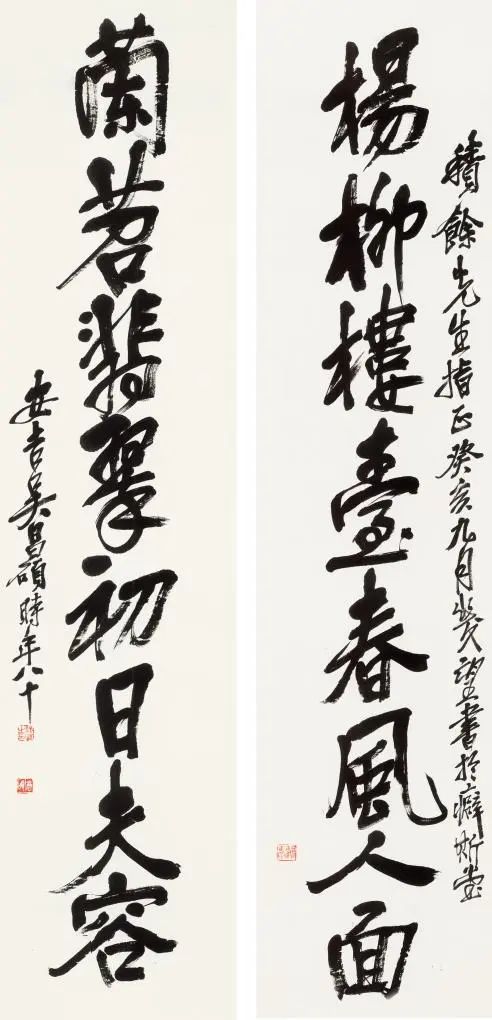 積餘先生指正癸亥九月幾望書於癖斯堂
楊柳樓臺春風人面
蘭苕翡翠初日夫容
安吉吳昌碩時年八十